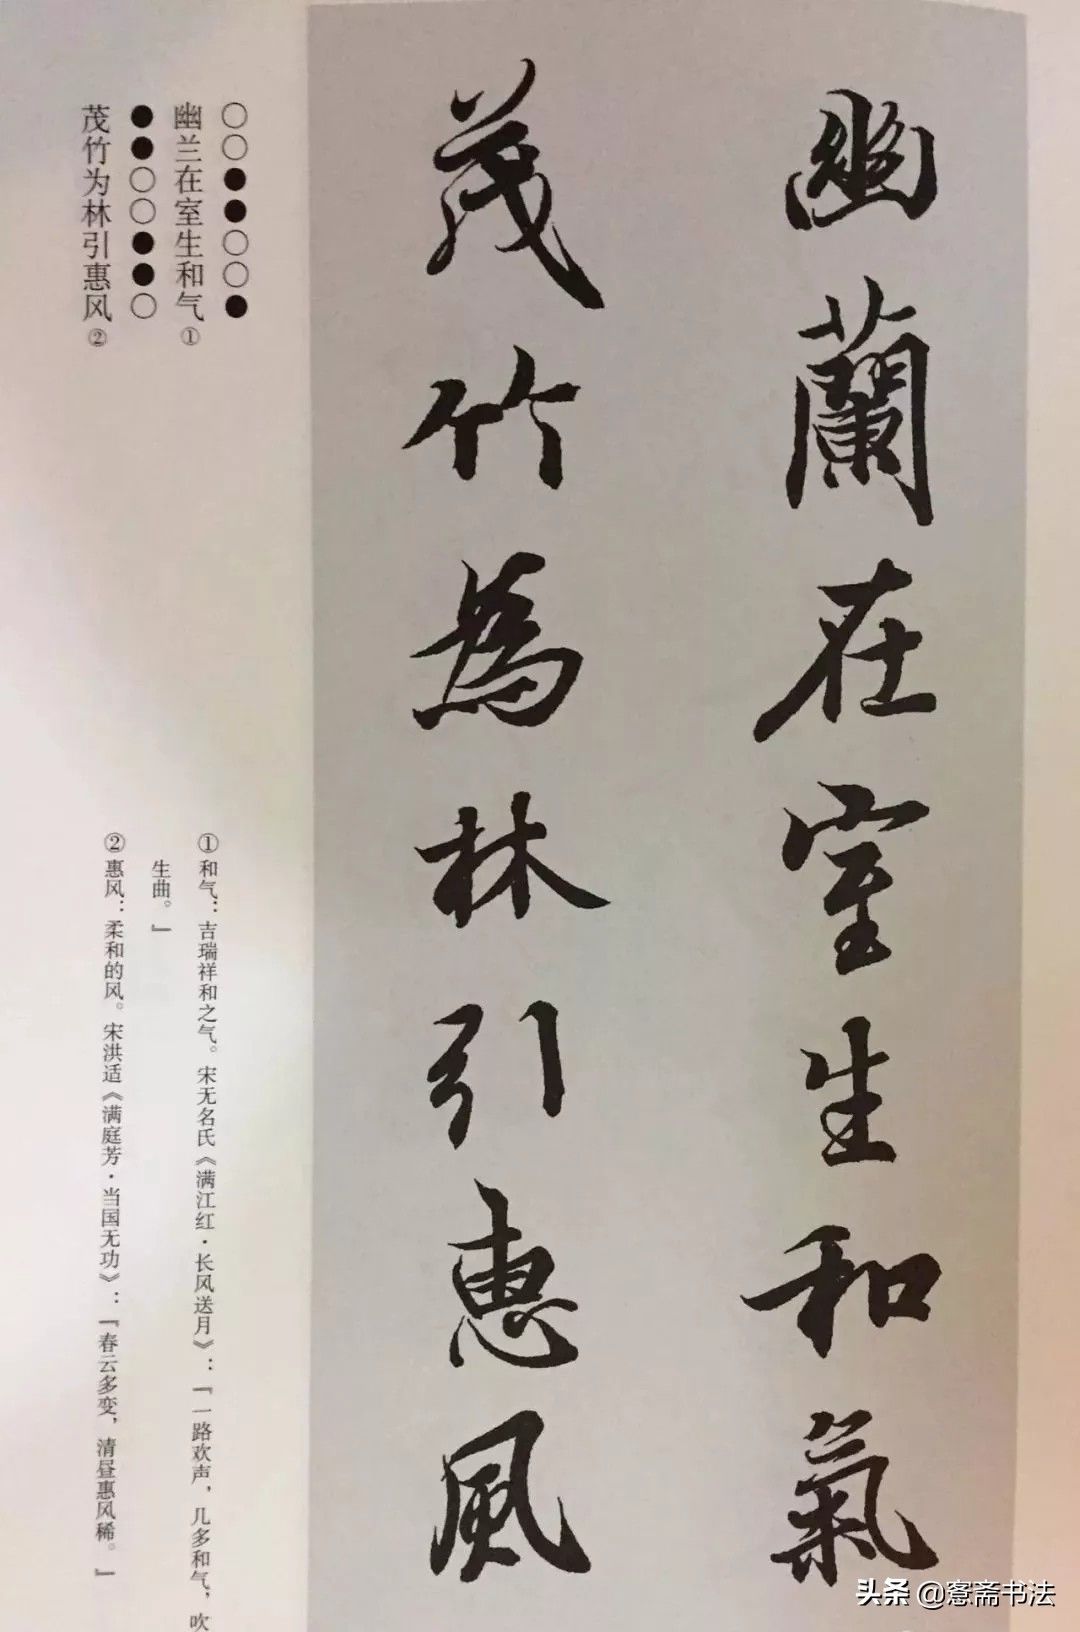 幽蘭在室生和氣
茂竹為林引惠風
○○●●○○●
幽兰在室生和气①
●●○○●●○
茂竹为林引惠风②
①和气：吉瑞祥和之气。宋无名氏《满江红·长风送月》：「一路欢声，几多和气，吹
生曲。」
②惠风：柔和的风。宋洪适《满庭芳·当国无功》：「春云多变，清昼惠风稀。」
头条@窓斋书法